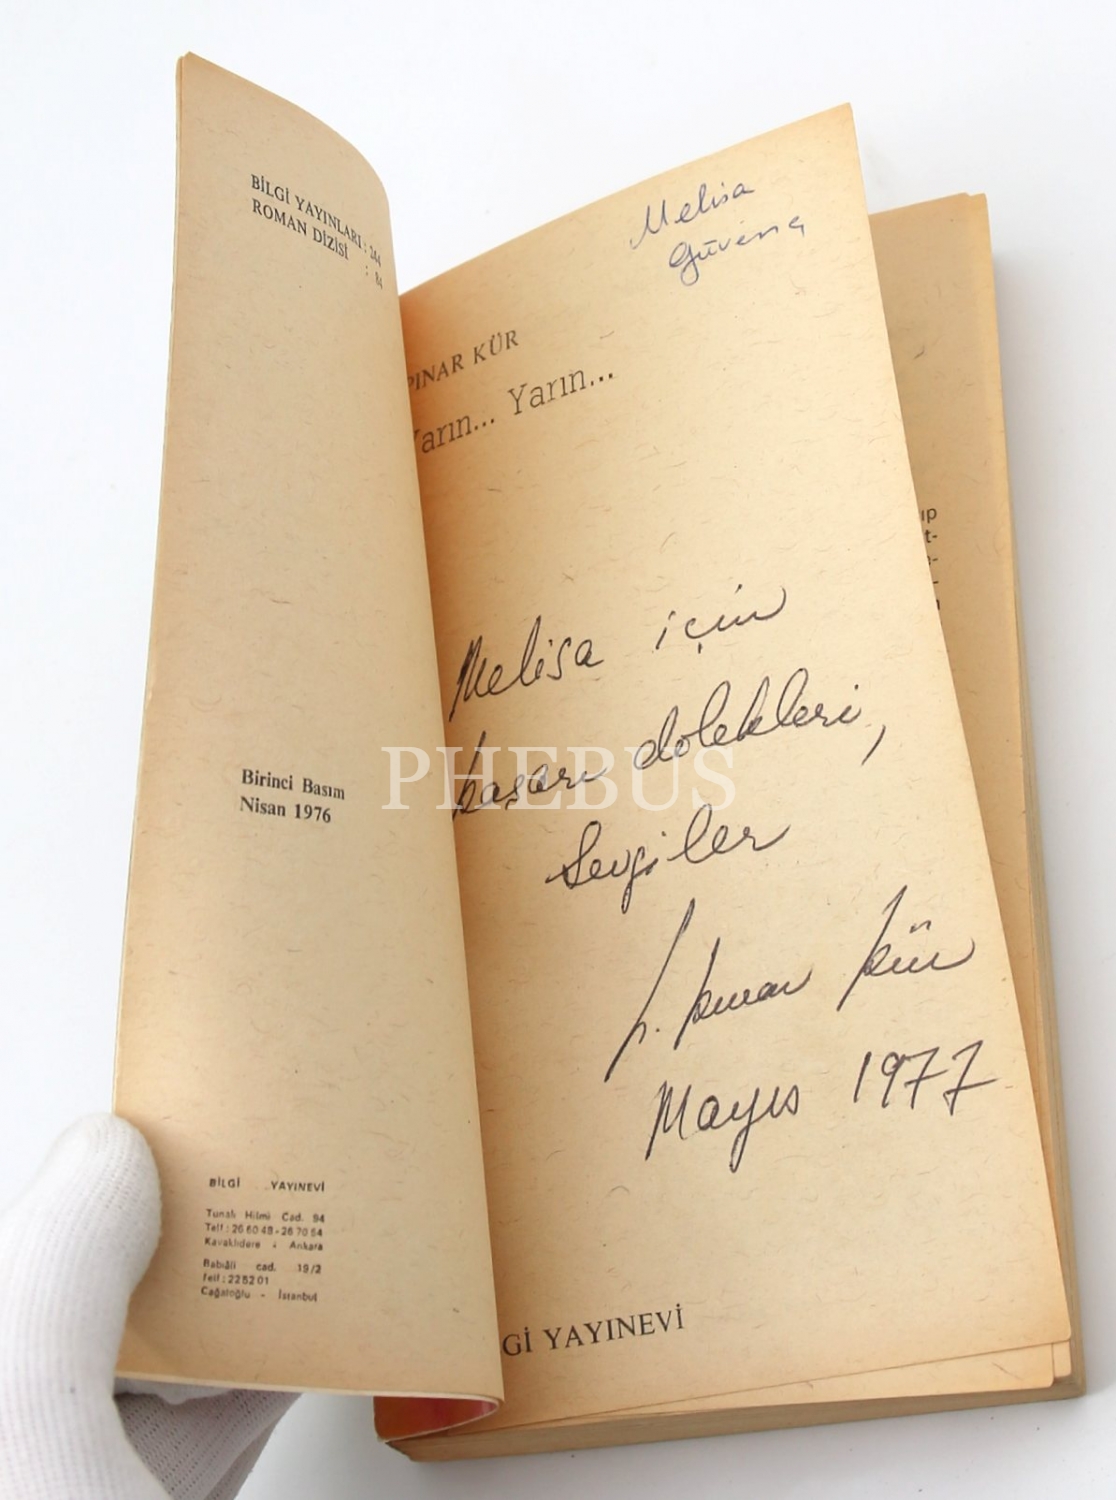 BİLGİ YAYINLARI : 244
ROMAN DİZİSİ : 84
Birinci Basım
Nisan 1976
BİLGİ YAYINEVİ
Tunalı Hilmi Cad. 94
Telf : 26 60 48 - 26 70 54
Kavaklıdere - Ankara
Babıâli cad. 19/2
Telf : 22 52 01
Cağaloğlu - İstanbul
Melisa
Güvenç
PINAR KÜR
Yarın... Yarın...
Melisa için
başarı dilekleri,
Sevgiler
Pınar Kür
Mayıs 1977
Gİ YAYINEVİ
PHEBUS